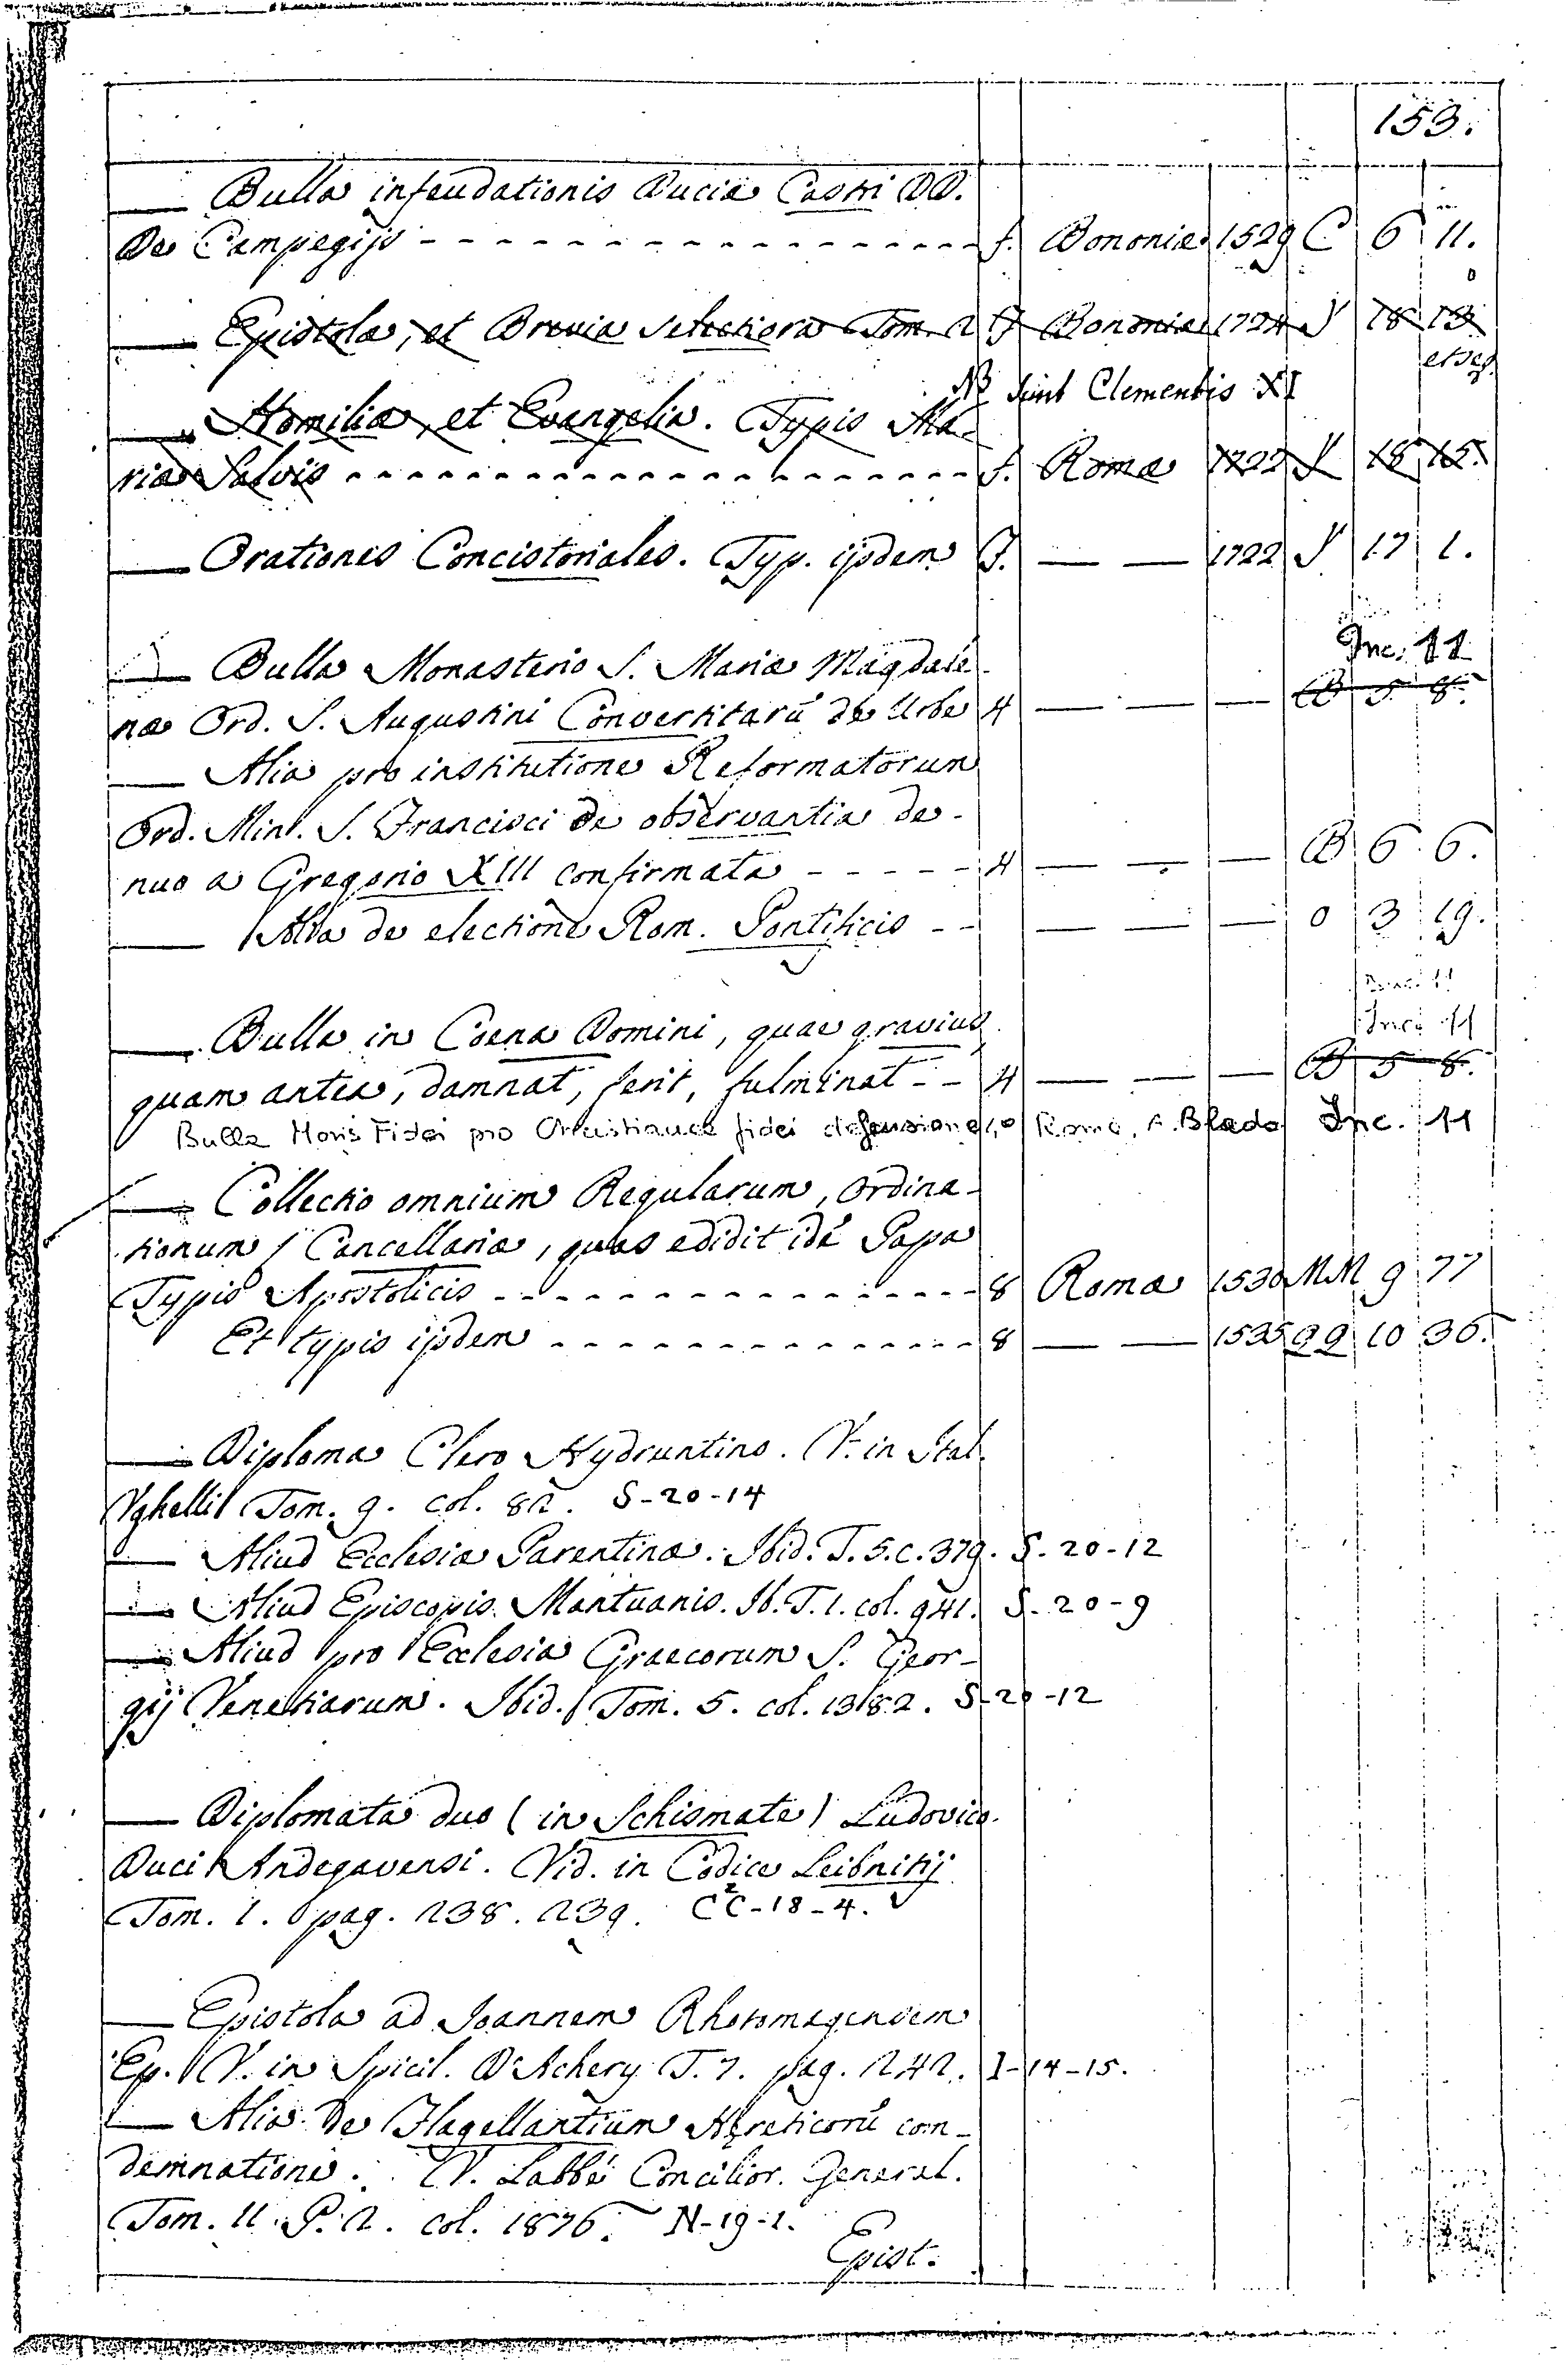 153.
— Bulla infeudationis Ducia Castri DD.
De Campegijs - - - - - - - f. Bononiæ 1529 C 6 11.
— Epistolæ, et Brevia Selectiora Tom. 2 f Bononiæ 1724 S 18 13
et seq.
NB Sunt Clementis XI
— Homiliæ, et Evangelia. Typis Ma-
riæ Salvis - - - - - - - f. Romæ 1722 S 18 15.
— Orationes Concistoriales. Typ. ijsdem f. — — 1722 S 17 1.
Inc. 11
— Bulla Monasterio S. Mariæ Magdale-
næ Ord. S. Augustini Convertitarū de Urbe 4 — — — B 5 8.
— Alia pro institutione Reformatorum
Ord. Min. S. Francisci de observantia de-
nuo a Gregorio XIII confirmata - - - - - 4 — — — B 6 6.
— Alia de electione Rom. Pontificis - - — — — O 3 19.
Inc. 11
— Bulla in Coena Domini, quae gravius
quam antea, damnat, ferit, fulminat - - 4 — — — B 5 8.
Bulla pro Christianae fidei defensione Roma, A. Blado Inc. 11
— Collectio omnium Regularum, Ordina-
tionum Cancellariæ, quas edidit idē Papa
Typis Apostolicis - - - - - - - 8 Romæ 1530 MM 9 77
Et typis ijsdem - - - - - - - 8 — — 1535 QQ 10 36.
— Diploma Clero Hydruntino. V. in Ital.
Vghelli Tom. 9. col. 82. S-20-14
— Aliud Ecclesiæ Parentinæ. Ibid. T. 5. c. 379. S-20-12
— Aliud Episcopis Mantuanis. Ib. T. 1. col. 941. S-20-9
— Aliud pro Ecclesia Graecorum S. Geor-
gij Venetiarum. Ibid. Tom. 5. col. 1382. S-20-12
— Diplomata duo (in Schismate) Ludovico
Duci Andegavensi. Vid. in Codice Leibnitij
Tom. 1. pag. 238. 239. C²C-18-4.
— Epistola ad Joannem Rhotomagensem
Ep. V. in Spicil. D'Achery T. 7. pag. 242. I-14-15.
— Alia de Flagellantium Hæreticorū con-
demnatione. V. Labbé Concilior. General.
Tom. 11. P. 2. col. 1876. N-19-1.
Epist.